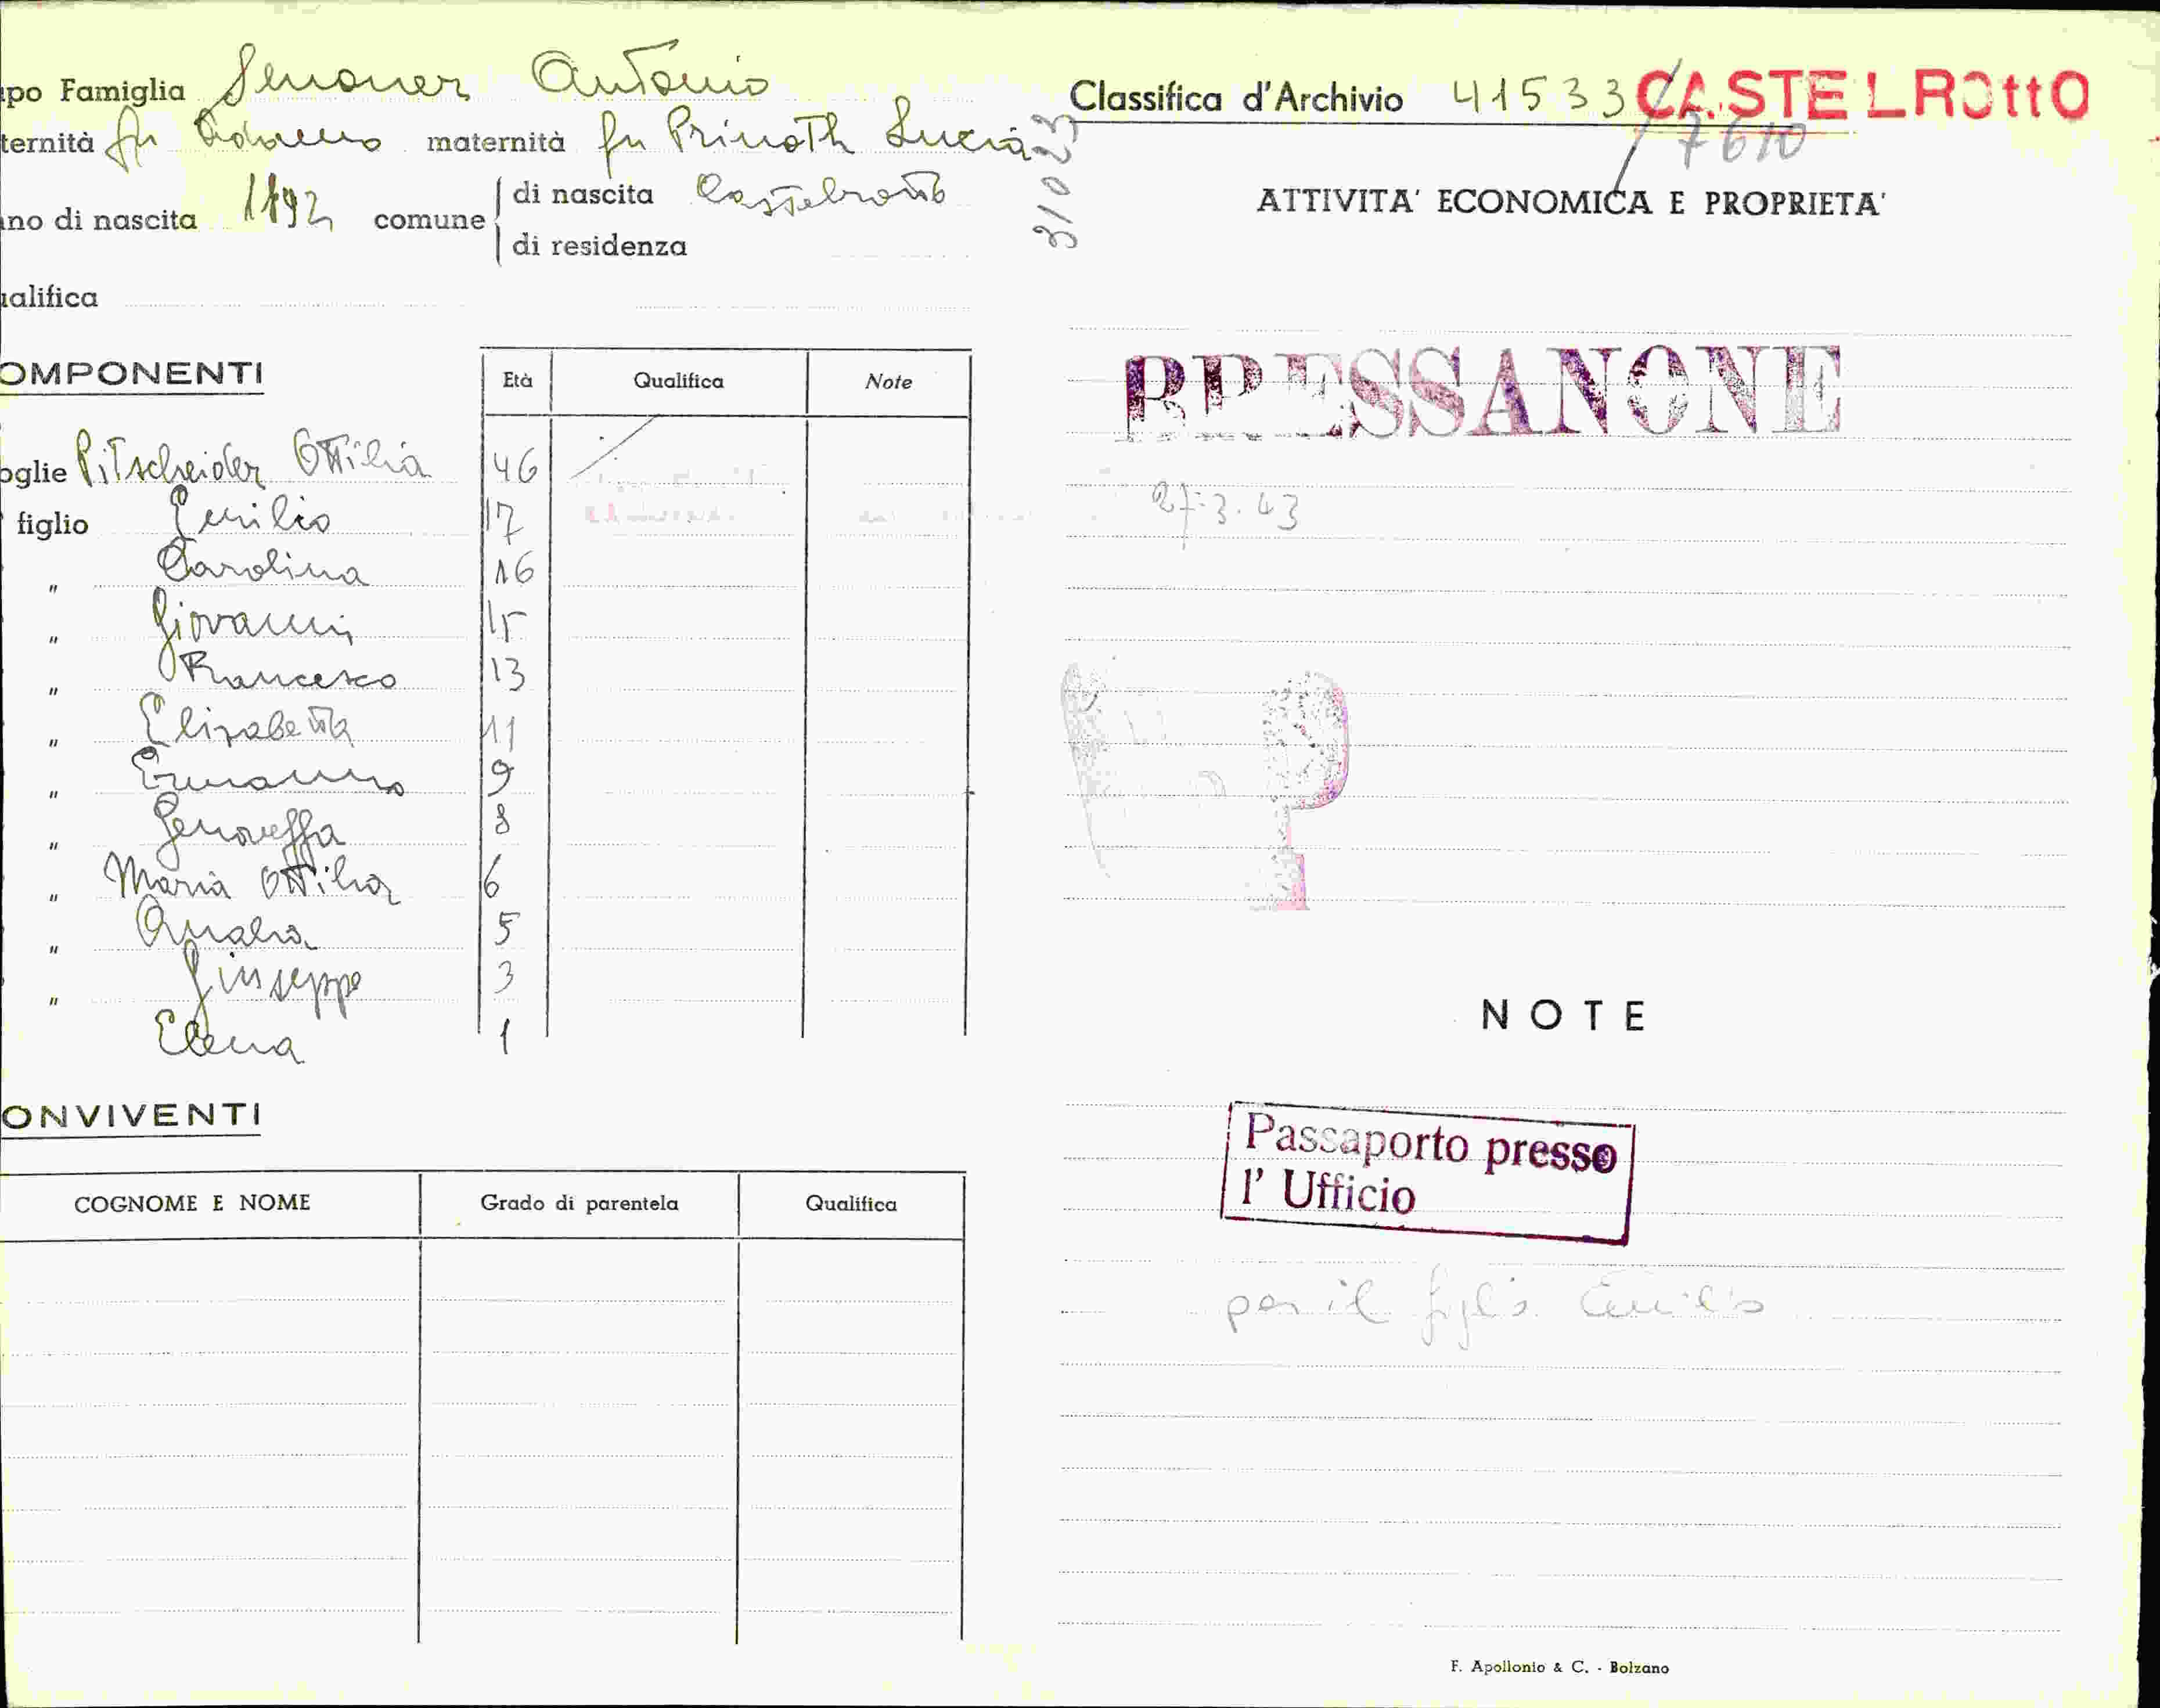 po Famiglia Senoner Antonio
ternità fu Adamo maternità fu Prinoth Lucia
no di nascita 1892 comune di nascita Castelrotto
di residenza
alifica
OMPONENTI
Età Qualifica Note
oglie Pitscheider Ottilia 46
figlio Emilio 17
" Carolina 16
" Giovanni 15
" Francesco 13
" Elisabetta 11
" Ermanno 9
" Genoveffa 8
" Maria Ottilia 6
" Amalia 5
" Giuseppe 3
" Elena 1
ONVIVENTI
COGNOME E NOME Grado di parentela Qualifica
31023
Classifica d'Archivio 41533 CASTELROttO
/7610
ATTIVITA' ECONOMICA E PROPRIETA'
BRESSANONE
27.3.43
P
NOTE
Passaporto presso
l' Ufficio
per il figlio Emilio
F. Apollonio & C. - Bolzano